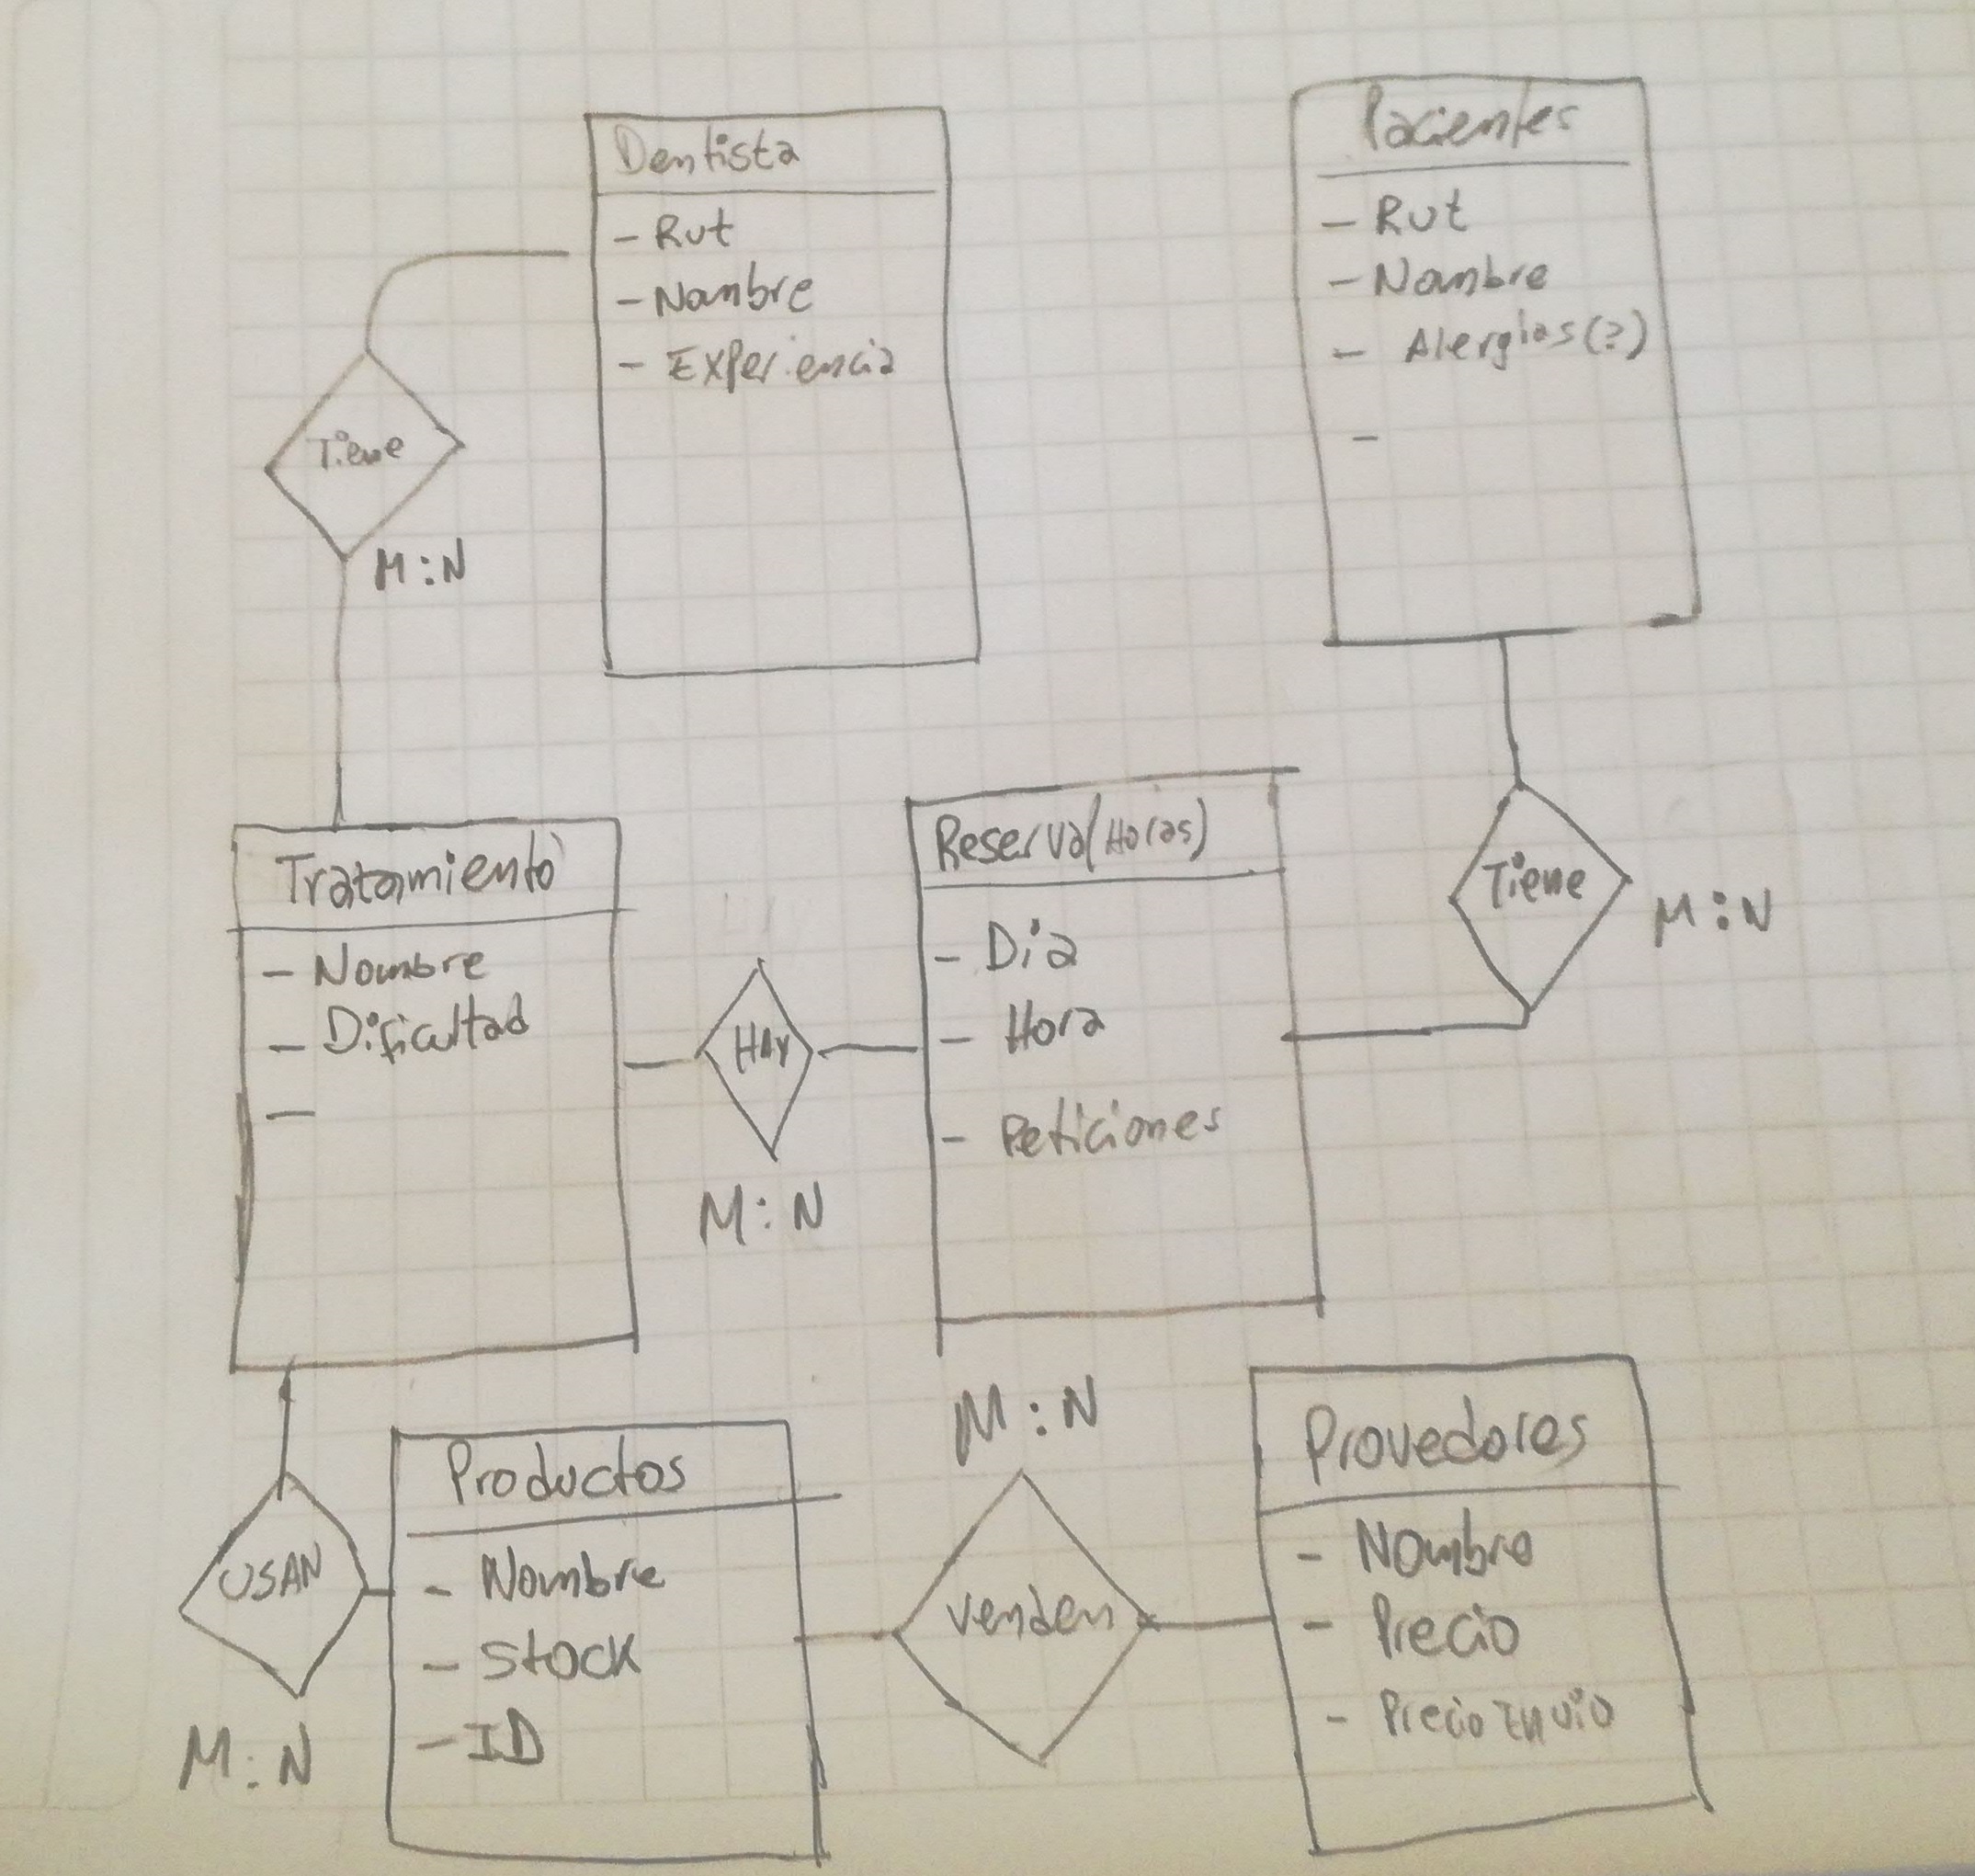 Dentista
- Rut
- Nombre
- Experiencia
Pacientes
- Rut
- Nombre
- Alergias(?)
-
Tiene
M:N
Tratamiento
- Nombre
- Dificultad
-
HAY
M:N
Reserva(Horas)
- Dia
- Hora
- Peticiones
Tiene
M:N
USAN
M:N
Productos
- Nombre
- Stock
- ID
M:N
Venden
Provedores
- Nombre
- Precio
- Precio Envio